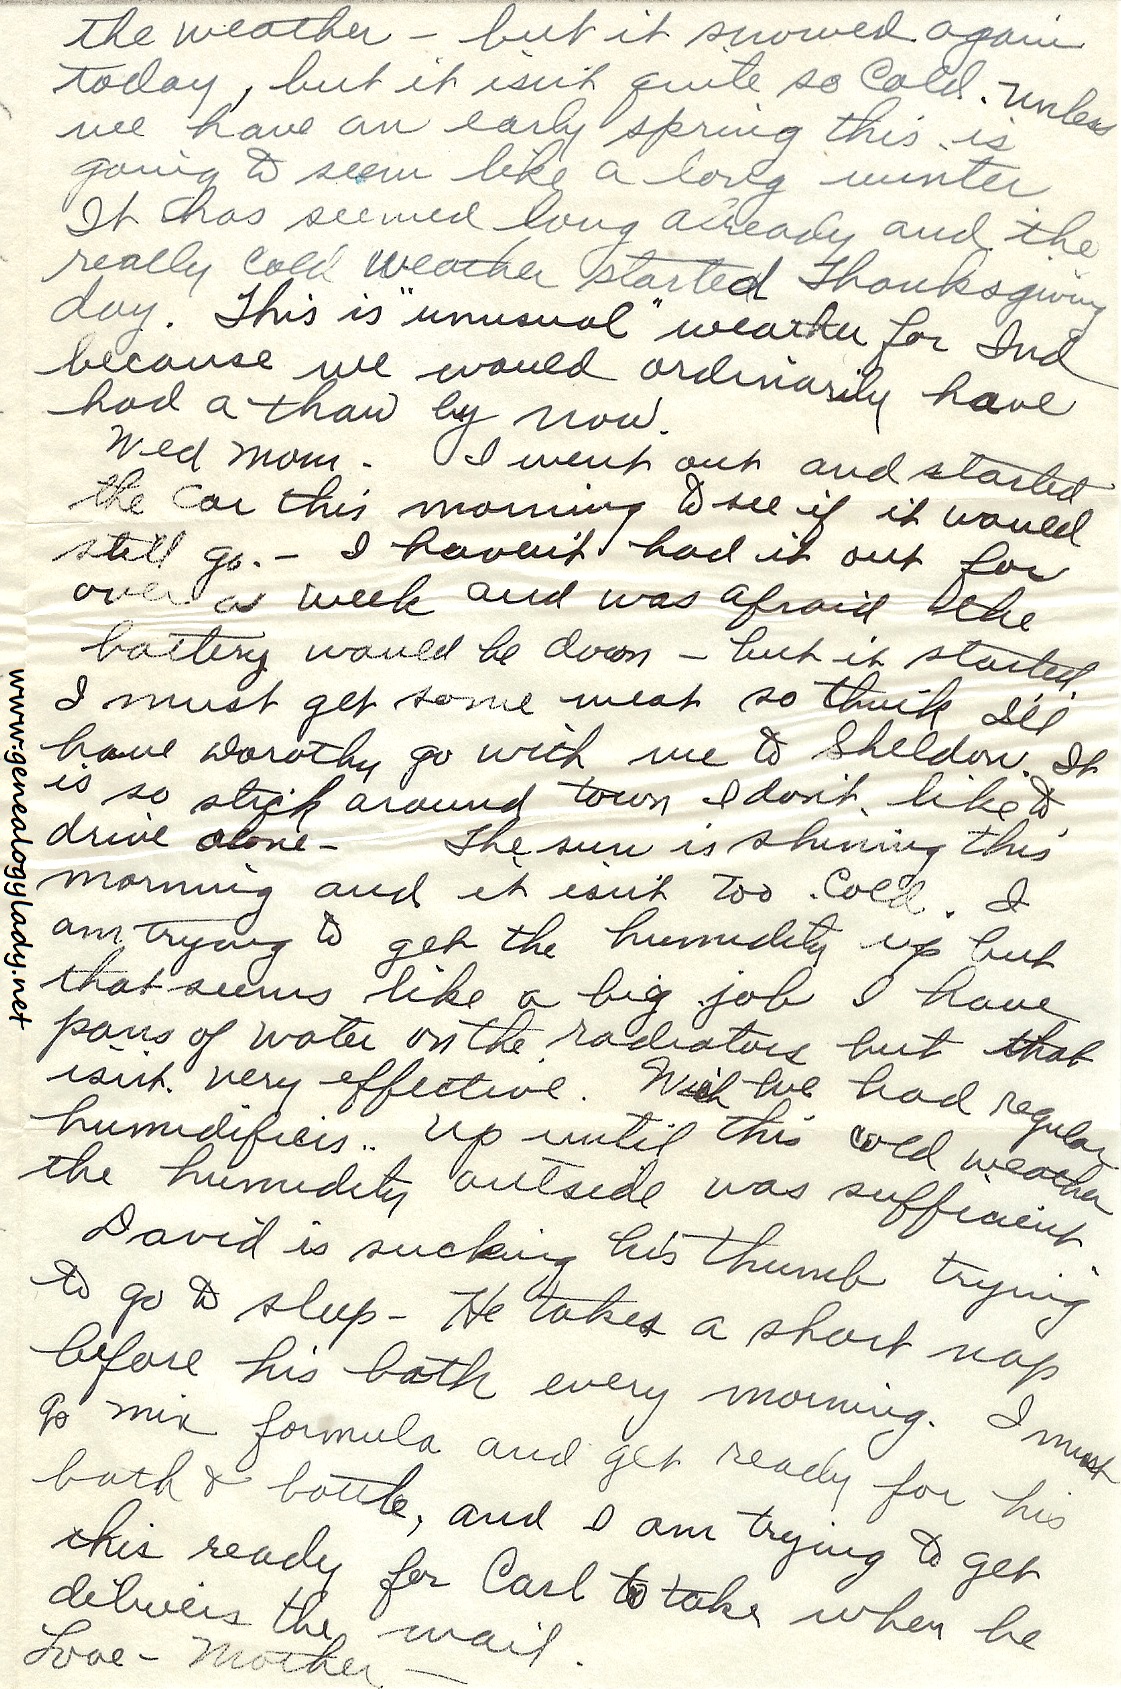 the weather – but it snowed again
today, but it isn't quite so cold. Unless
we have an early spring this is
going to seem like a long winter
It has seemed long already and the
really cold weather started Thanksgiving
day. This is "unusual" weather for Ind
because we would ordinarily have
had a thaw by now.
Wed morn. I went out and started
the car this morning to see if it would
still go. – I haven't had it out for
over a week and was afraid the
battery would be down – but it started.
I must get some meat so think I'll
have Dorothy go with me to Sheldon. It
is so slick around town I don't like to
drive alone – The sun is shining this
morning and it isn't too cold. I
am trying to get the humidity up but
that seems like a big job I have
pans of water on the radiators but that
isn't very effective. Wish we had regular
humidifiers.. Up until this cold weather
the humidity outside was sufficient
David is sucking his thumb trying
to go to sleep – He takes a short nap
before his bath every morning. I must
go mix formula and get ready for his
bath & bottle, and I am trying to get
this ready for Carl to take when he
delivers the mail.
Love – Mother –
www.genealogylady.net